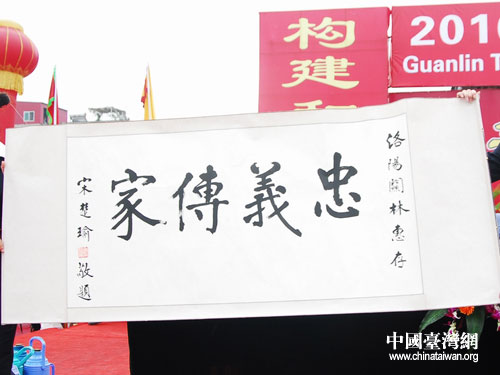 构建和
2010
Guanlin T
洛陽關林惠存
忠義傳家
宋楚瑜敬題
中國臺灣網
www.chinataiwan.org